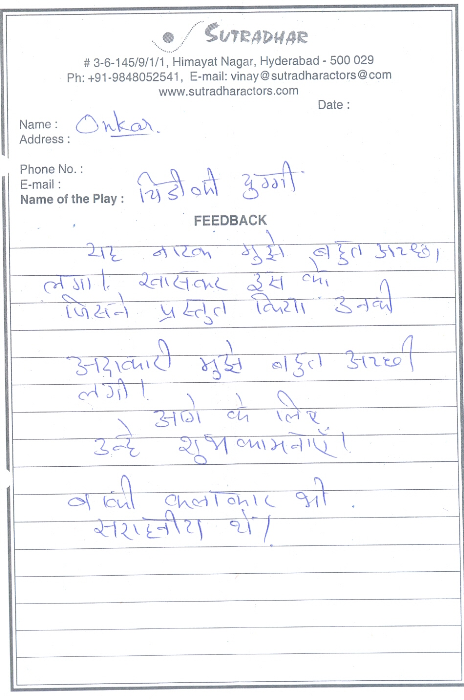 SUTRADHAR
# 3-6-145/9/1/1, Himayat Nagar, Hyderabad - 500 029
Ph: +91-9848052541, E-mail: vinay@sutradharactors@com
www.sutradharactors.com
Date :
Name : Onkar.
Address :
Phone No. :
E-mail :
Name of the Play : चिडी की दुग्गी
FEEDBACK
यह नाटक मुझे बहुत अच्छा
लगा। खासकर इस के
जिसने प्रस्तुत किया उनकी
अदाकारी मुझे बहुत अच्छी
लगी।
आगे के लिए
उन्हे शुभकामनाएँ।
बाकी कलाकार भी
सराहनीय थे।